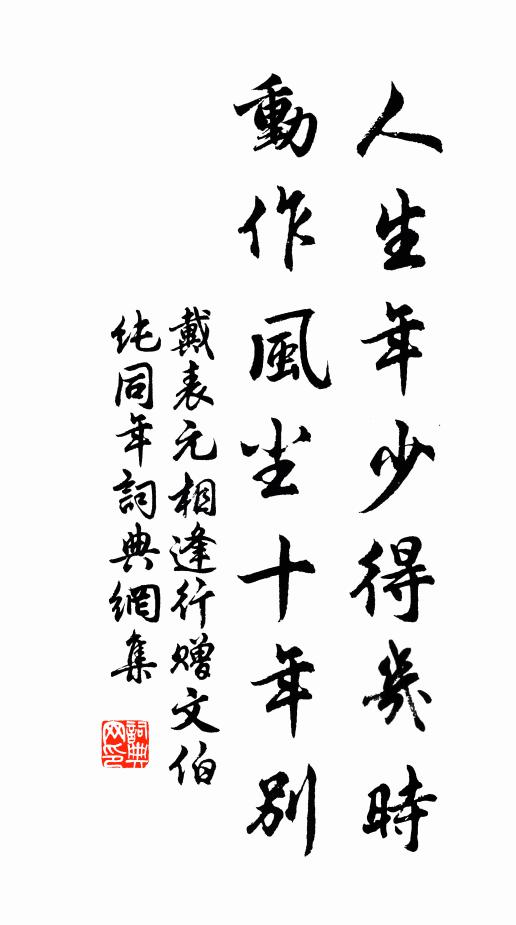 人生年少得幾時
動作風尘十年別
戴表元相逢行赠文伯
纯同年詞典網集
詞典网印